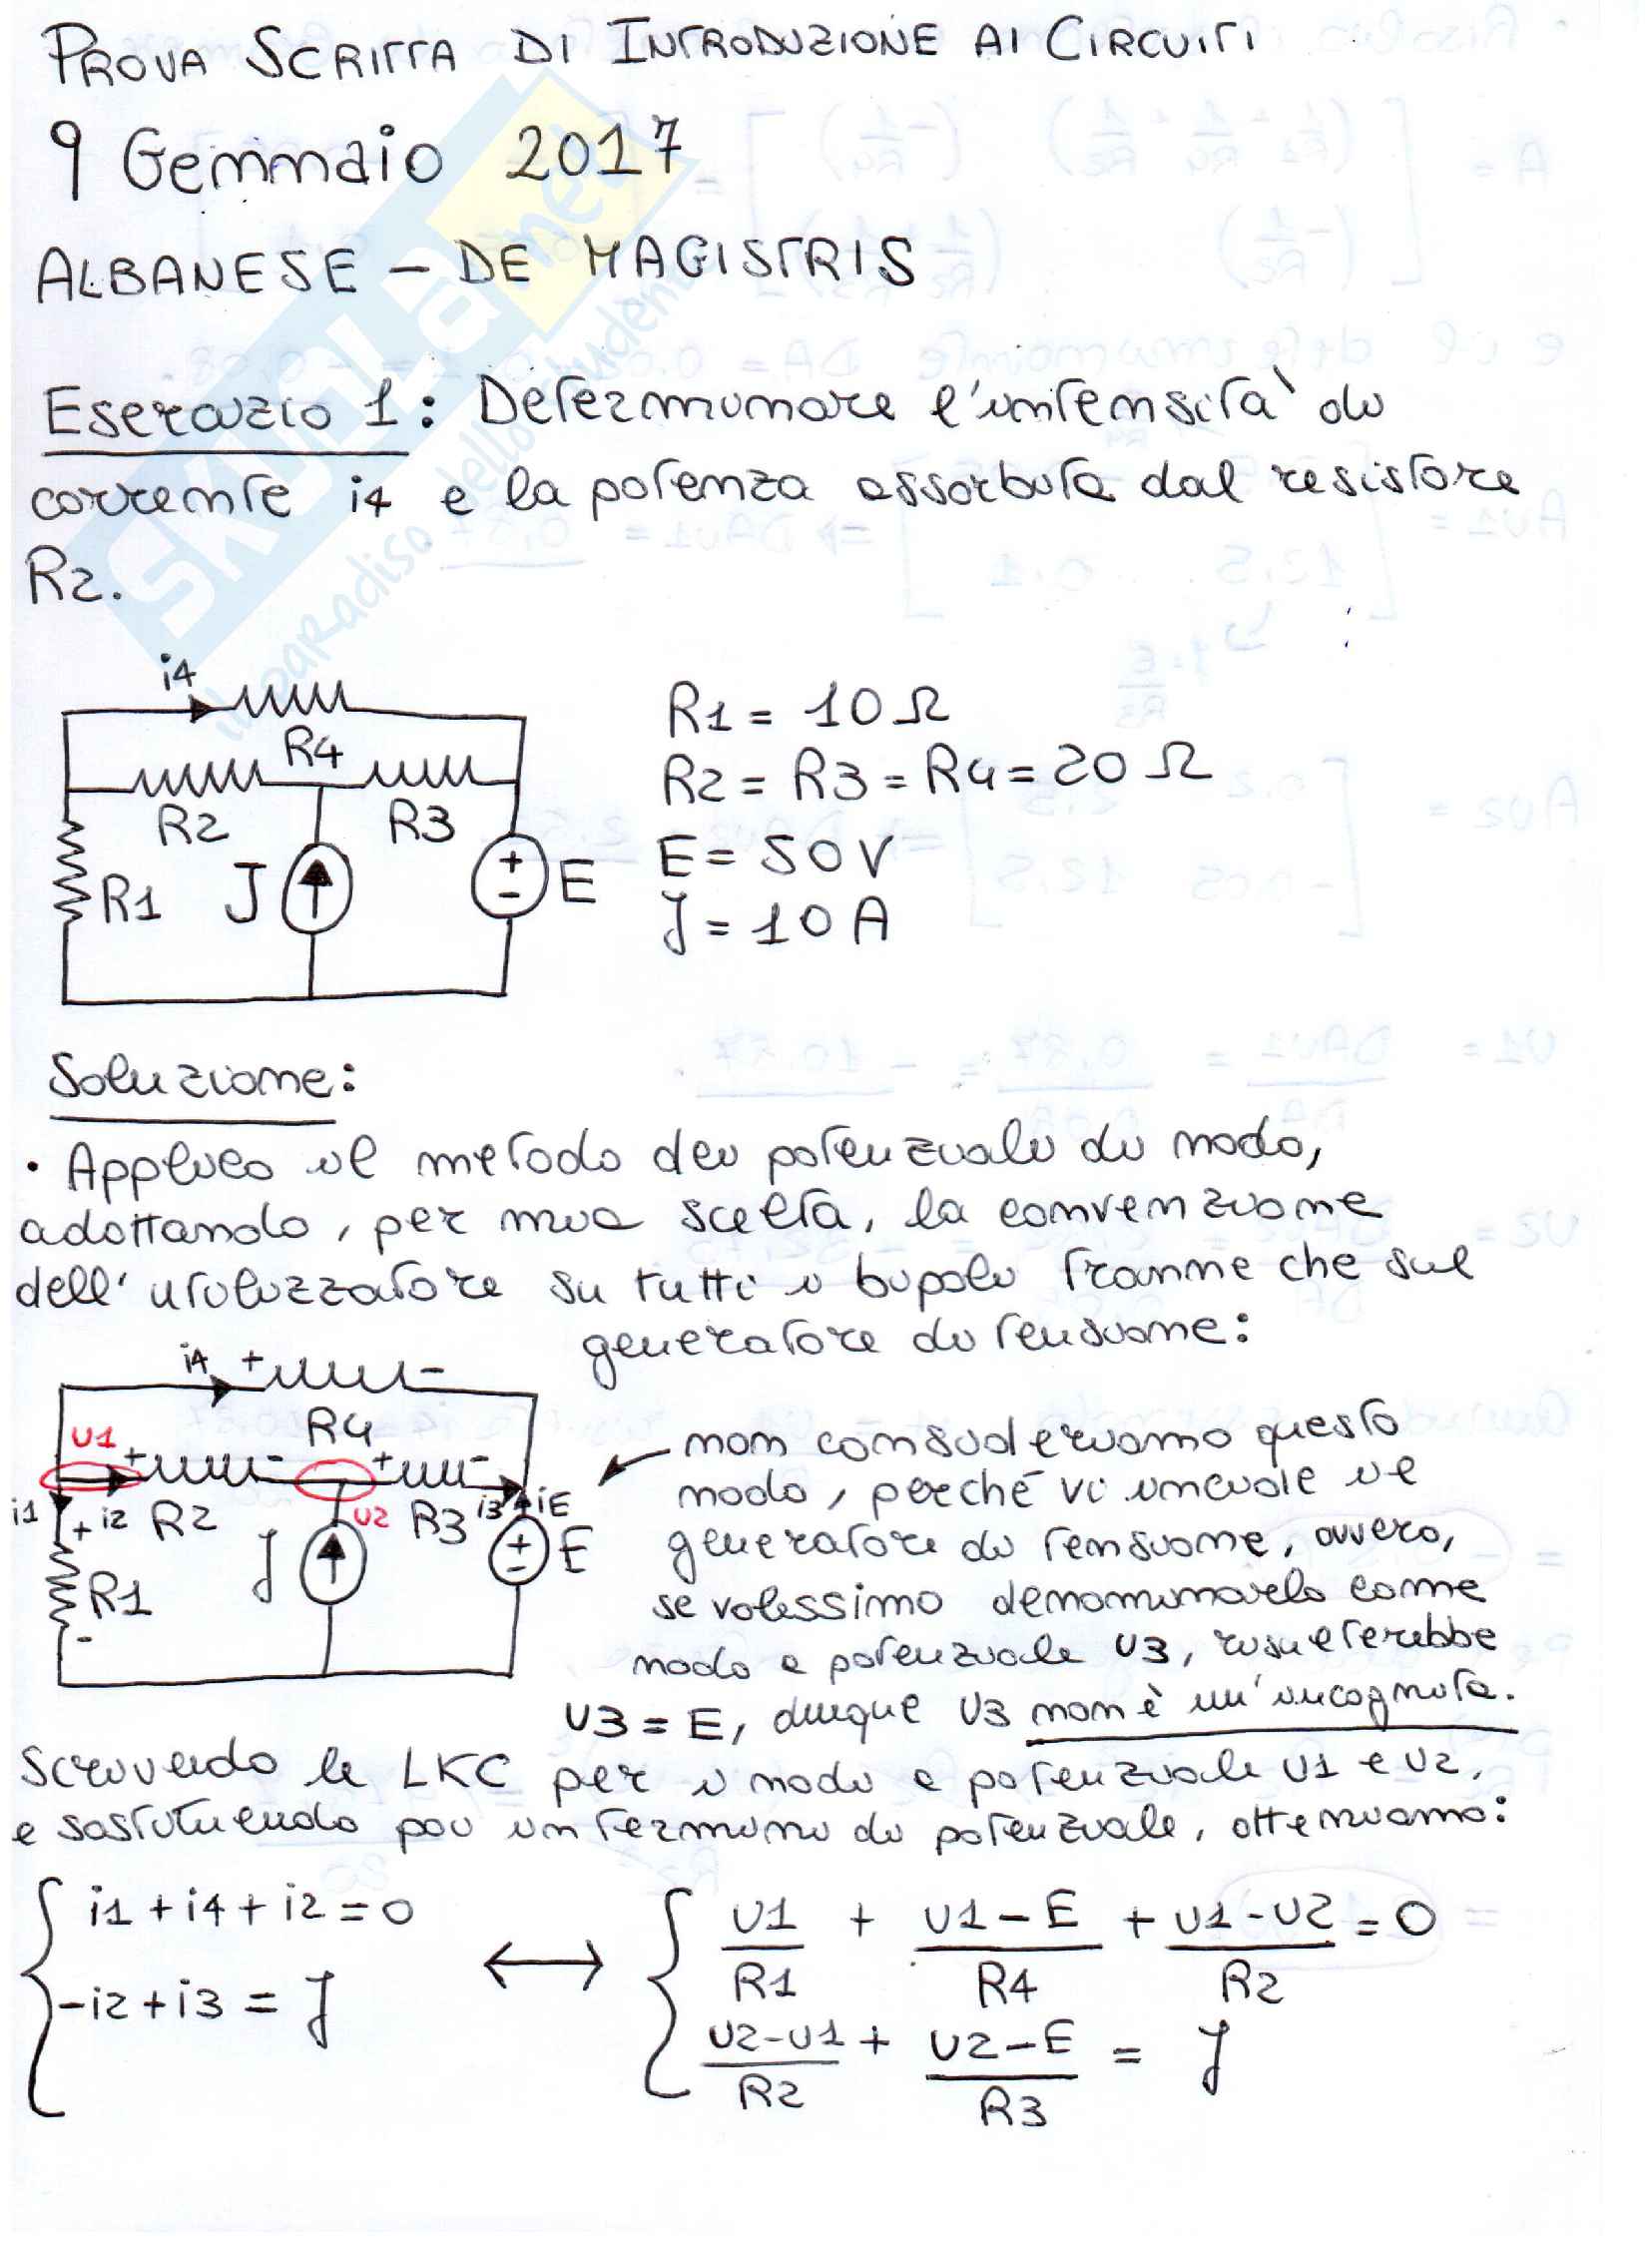 PROVA SCRITTA DI INTRODUZIONE AI CIRCUITI
9 Gennaio 2017
ALBANESE - DE MAGISTRIS
Esercizio 1: Determinare l'intensità di
corrente i4 e la potenza assorbita dal resistore
R2.
i4
R4
R2
R3
R1
J
+
-
E
R1 = 10 Ω
R2 = R3 = R4 = 20 Ω
E = 50 V
J = 10 A
Soluzione:
• Applico il metodo dei potenziali di nodo,
adottando, per mia scelta, la convenzione
dell'utilizzatore su tutti i bipoli tranne che sul
generatore di tensione:
i4 + -
R4
U1
+ - + -
i1 + i2 R2 U2 R3 i3 iE
J
+
-
E
R1
-
non consideriamo questo
nodo, perché vi incide il
generatore di tensione, ovvero,
se volessimo denominarlo come
nodo a potenziale U3, risulterebbe
U3 = E, dunque U3 non è un'incognita.
Scrivendo le LKC per i nodi a potenziale U1 e U2,
e sostituendo poi in termini di potenziale, otteniamo:
{ i1 + i4 + i2 = 0
-i2 + i3 = J
⟷
{ U1/R1 + U1-E/R4 + U1-U2/R2 = 0
U2-U1/R2 + U2-E/R3 = J
SKUOLA.net
il paradiso dello studente